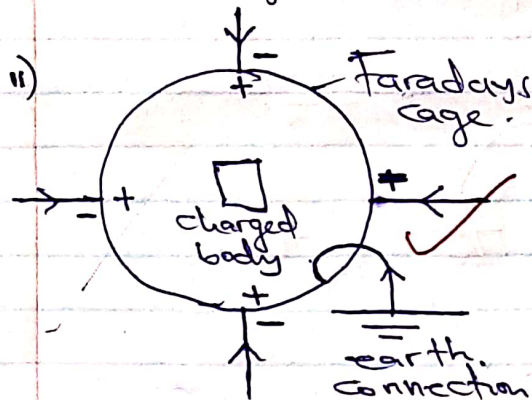 ii)
-
+
Faradays
cage.
- +
+
charged
body
+
-
earth.
connection